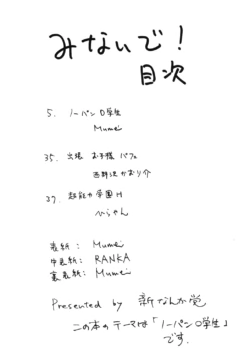 みないで!
目次
5. ノーパン〇学生
Mumei
35. 出張 お子様 パフェ
かおり介
37. 超能力学園H
いちゃん
表紙: Mumei
中表紙: RANKA
裏表紙: Mumei
Presented by 新なんか党
この本のテーマは「ノーパン〇学生」
です.